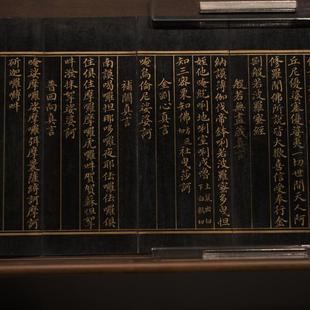 丘尼優婆塞優婆夷一切世間天人阿
修羅聞佛所說皆大歡喜信受奉行金
剛般若波羅蜜經
般若無盡藏真言
納謨薄伽伐帝鉢利若波羅蜜多曳怛
姪他唵紇唎地唎室唎戍嚕
知三蜜栗知佛社曳莎訶
金剛心真言
唵烏倫尼娑婆訶
補闕真言
南謨喝囉怛那哆囉夜耶佉囉佉囉俱
住俱住摩囉摩囉虎囉吽賀賀蘇怛拏
吽潑抹拏娑婆訶
普回向真言
唵娑摩囉娑摩囉弭摩曩薩縛訶摩訶
斫迦囉嚩吽